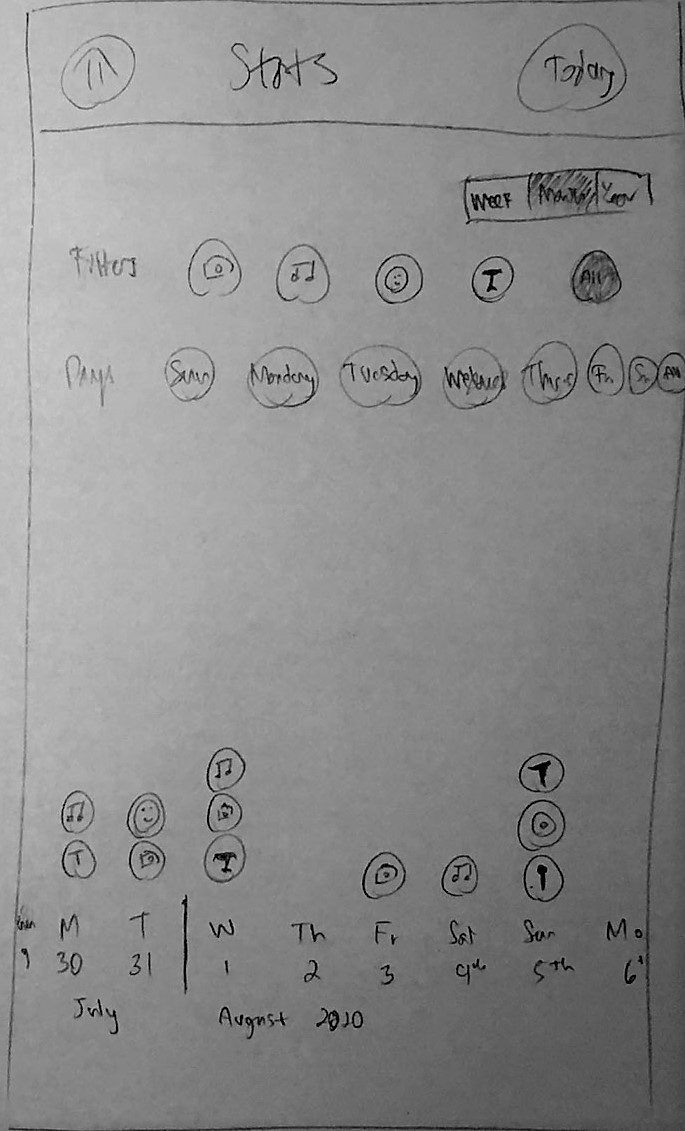 Stats Today
Week Month Year
Filters T All
Days Sun Monday Tuesday Thurs Fri Sa All
T
T T
M T W Th Fr Sat Sun Mo
9 30 31 1 2 3 4th 5th 6
July August 2010